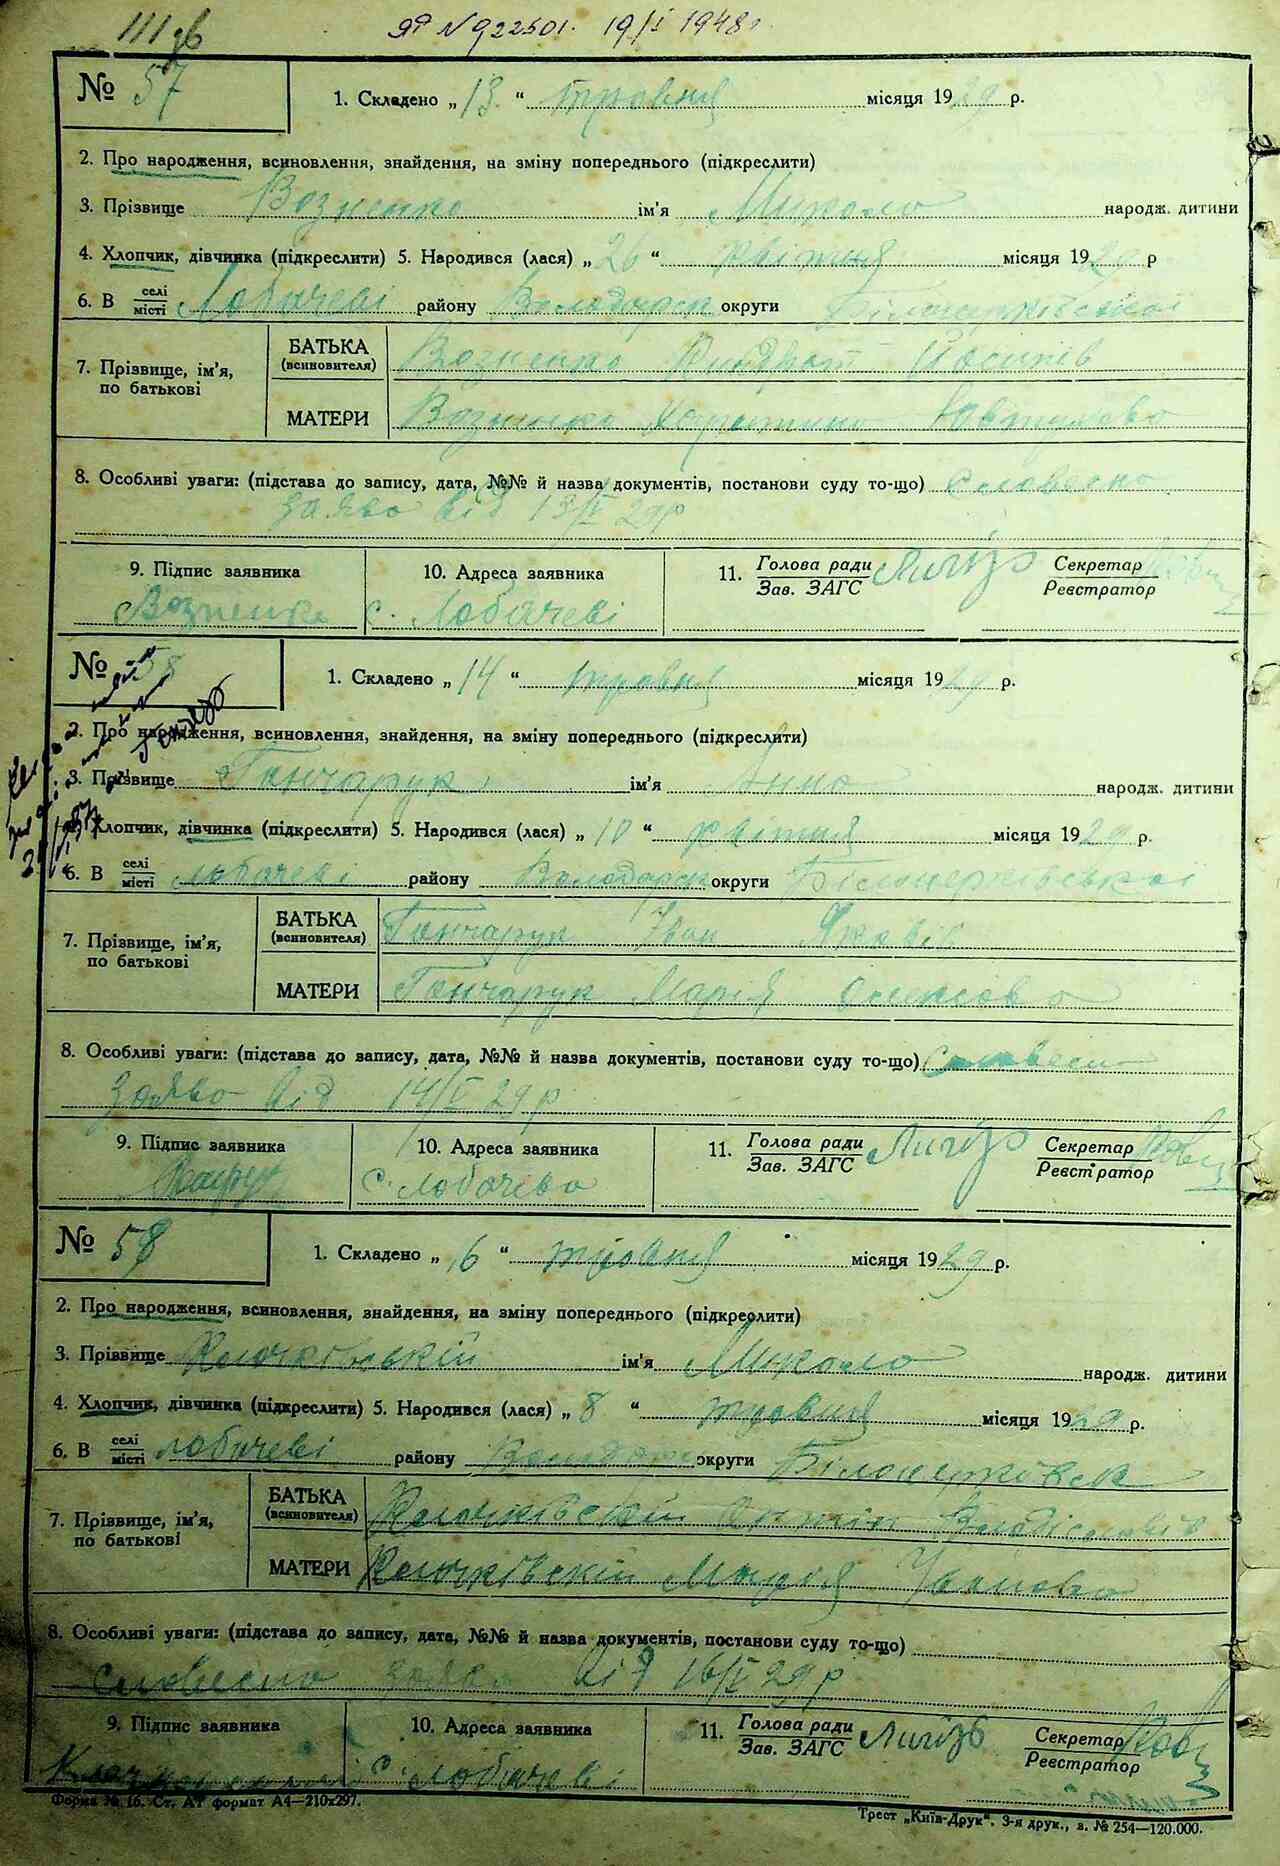 111 зв
ЯР N 922501. 19/I 1948 г.
№ 57
1. Складено „ 13 “ травня місяця 1929 р.
2. Про народження, всиновлення, знайдення, на зміну попереднього (підкреслити)
3. Прізвище Возненко ім'я Микола народж. дитини
4. Хлопчик, дівчинка (підкреслити) 5. Народився (лася) „ 26 “ квітня місяця 1929 р
6. В селі місті Лобачеві району Володарск округи Білоцерківської
7. Прізвище, ім'я, по батькові
БАТЬКА (всиновителя) Возненко Кіндрат Йосипів
МАТЕРИ Возненко Христина
8. Особливі уваги: (підстава до запису, дата, №№ й назва документів, постанови суду то-що) Словесна
заява від 13/V 29р
9. Підпис заявника 10. Адреса заявника 11. Голова ради Зав. ЗАГС Секретар Реєстратор
Возненко с. Лобачеві
№ 58
1. Складено „ 14 “ травня місяця 1929 р.
2. Про народження, всиновлення, знайдення, на зміну попереднього (підкреслити)
3. Прізвище Гончарук ім'я Анна народж. дитини
4. Хлопчик, дівчинка (підкреслити) 5. Народився (лася) „ 10 “ квітня місяця 1929 р.
6. В селі місті Лобачеві району Володарск округи Білоцерківської
7. Прізвище, ім'я, по батькові
БАТЬКА (всиновителя) Гончарук Іван Яковів
МАТЕРИ Гончарук Марія
8. Особливі уваги: (підстава до запису, дата, №№ й назва документів, постанови суду то-що) Словесн
Заява від 14/V 29р
9. Підпис заявника 10. Адреса заявника 11. Голова ради Зав. ЗАГС Секретар Реєстратор
с. Лобачева
№ 58
1. Складено „ 16 “ травня місяця 1929 р.
2. Про народження, всиновлення, знайдення, на зміну попереднього (підкреслити)
3. Прізвище Клочківський ім'я Микола народж. дитини
4. Хлопчик, дівчинка (підкреслити) 5. Народився (лася) „ 8 “ травня місяця 1929 р.
6. В селі місті Лобачеві району Володарс округи Білоцерківск
7. Прізвище, ім'я, по батькові
БАТЬКА (всиновителя) Клочківській Антін
МАТЕРИ Клочківскій Марія Іванова
8. Особливі уваги: (підстава до запису, дата, №№ й назва документів, постанови суду то-що)
словесна заява від 16/V 29р
9. Підпис заявника 10. Адреса заявника 11. Голова ради Зав. ЗАГС Секретар Реєстратор
с. Лобачеві
Форма № 16. Ст. АТ формат А4—210х297.
Трест „Київ-Друк“. 3-я друк., в. № 254—120.000.